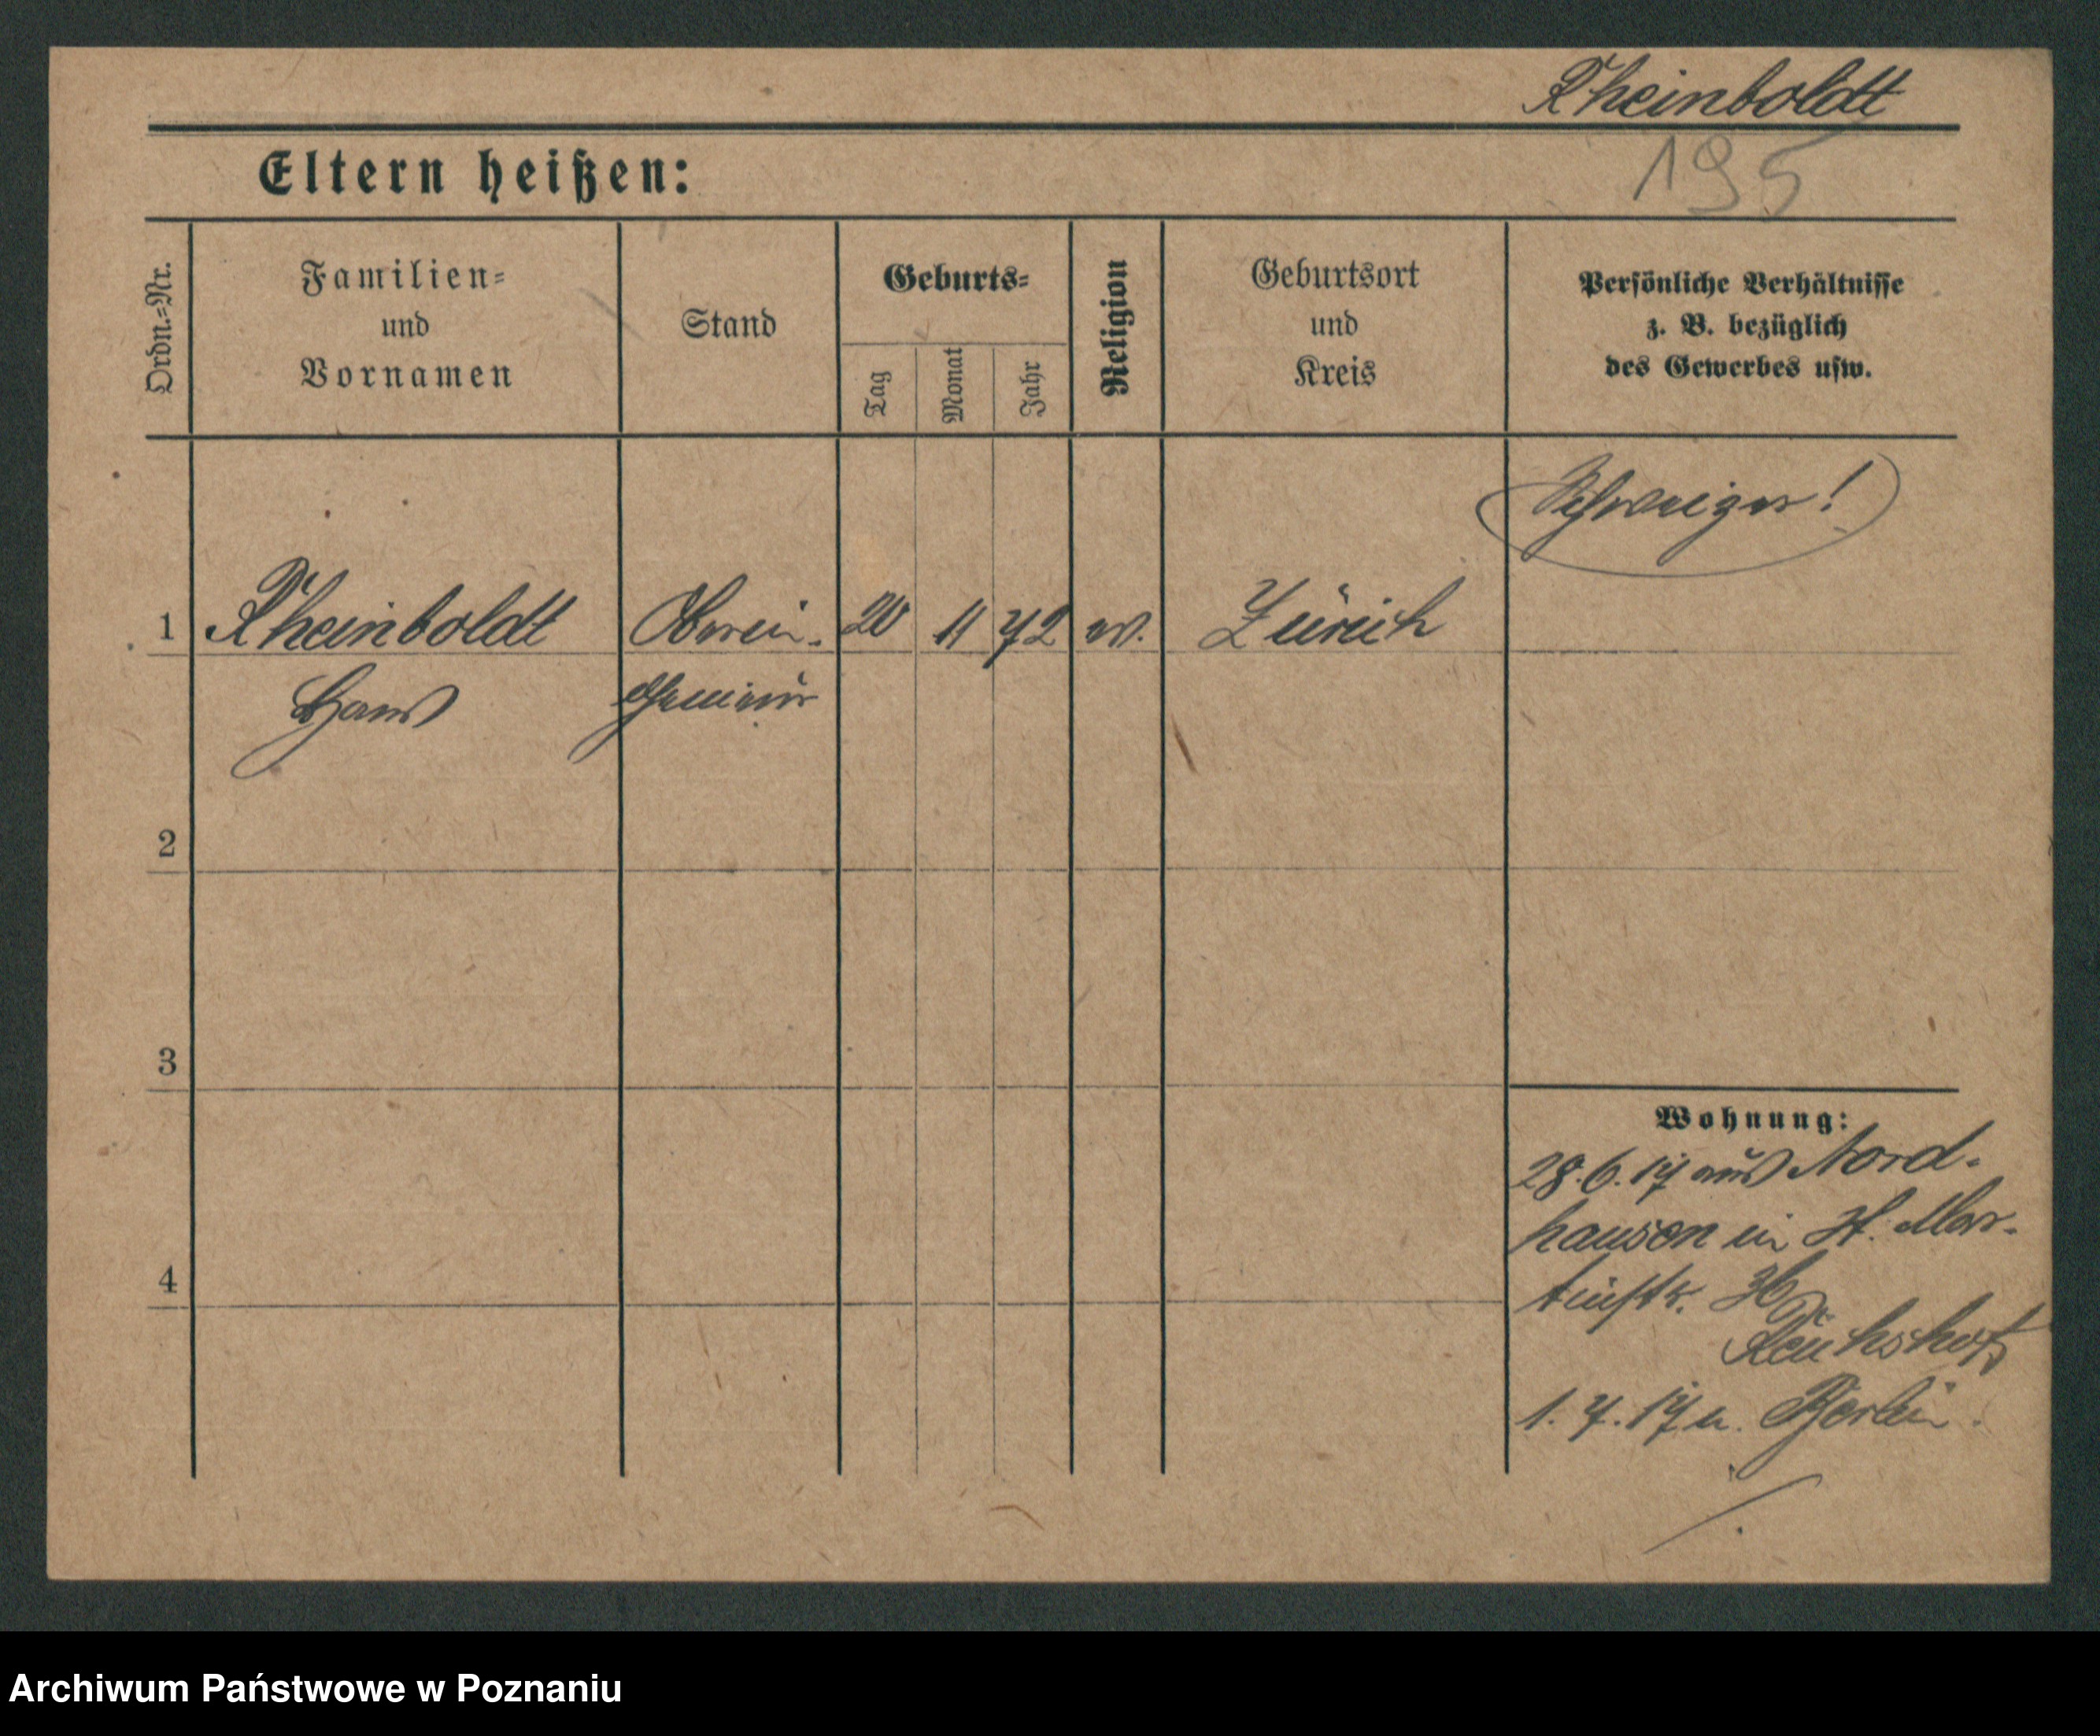 Rheinboldt
195
Eltern heißen:
Ordn.=Nr.
Familien=
und
Vornamen
Stand
Geburts=
Tag
Monat
Jahr
Religion
Geburtsort
und
Kreis
Persönliche Verhältnisse
z. B. bezüglich
des Gewerbes usw.
Schweizer!
1 Rheinboldt Oberin- 20 11 72 ev. Zürich
Hans
2
3
4
Wohnung:
28.6.17 aus Nord-
hausen in St. Mar-
tinstr.
1.7.17 n. Berlin.
Archiwum Państwowe w Poznaniu